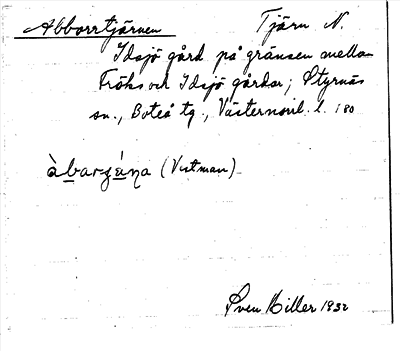 Abborrtjärnen Tjärn N.
Idsjö gård på gränsen mellan
Fröks och Idsjö gårdar; Styrnäs
sn., Boteå tg., Västernorrl. l. 180
(Vestman)
Sven Hiller 1932